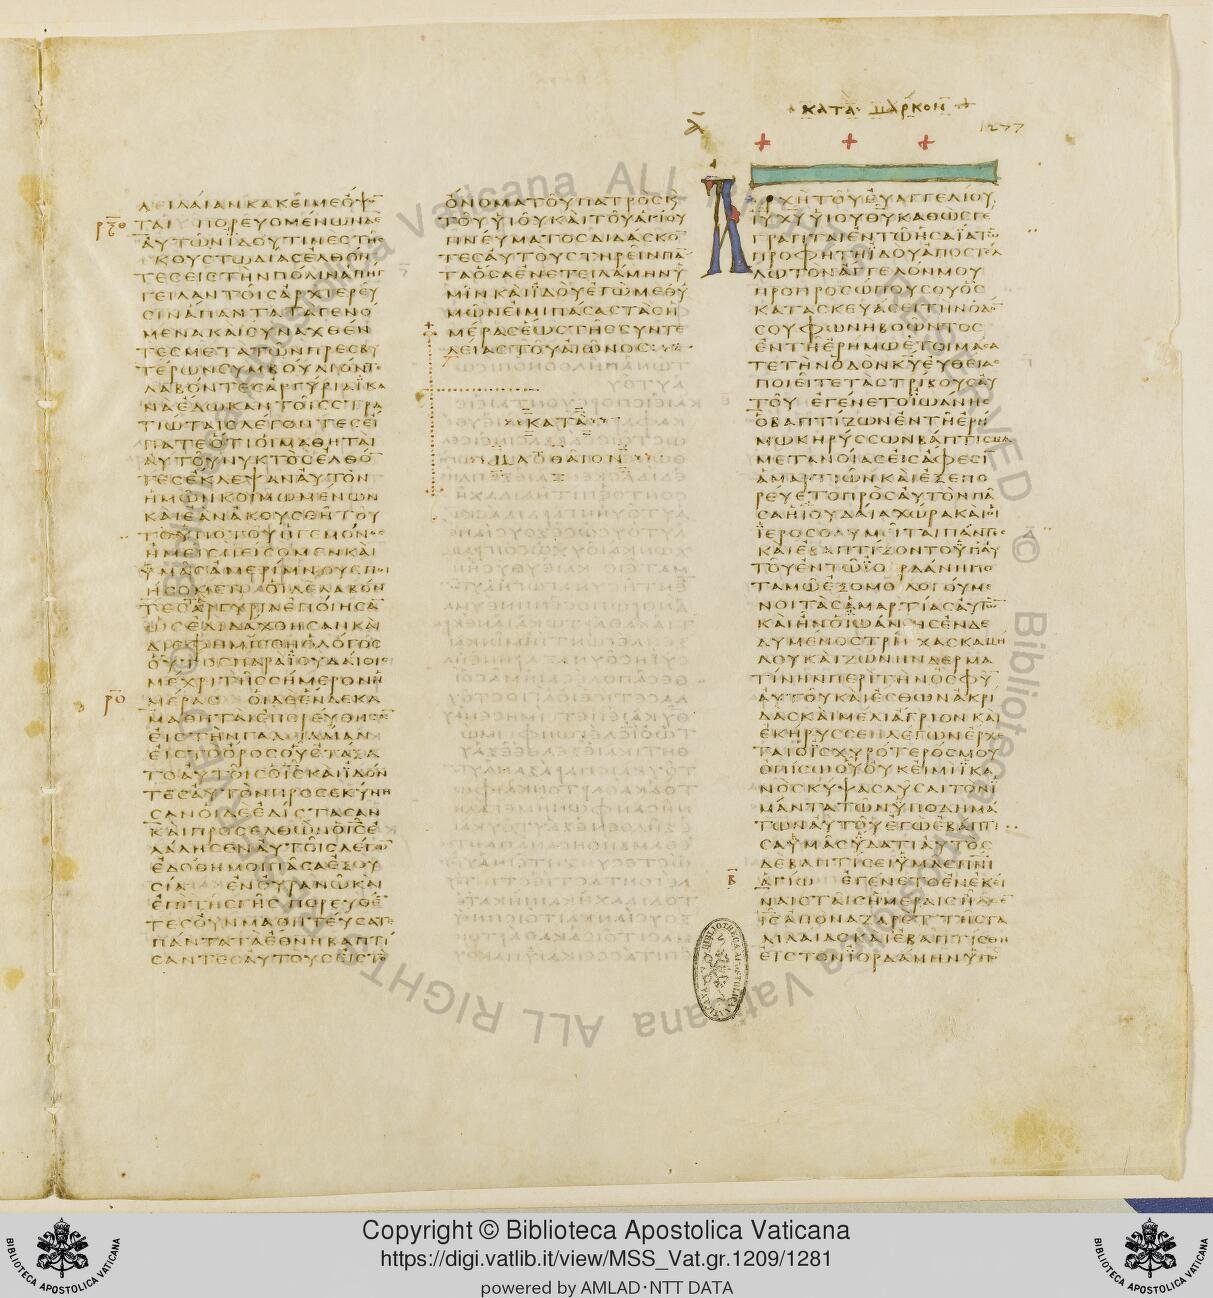 ΚΑΤΑ ΜΑΡΚΟΝ
1277
ΛΕΙΛΑΙΑΝ ΚΑΚΕΙ ΜΕ ΟΨ
ΤΑΙ ΠΟΡΕΥΟΜΕΝΩΝ ΔΕ
ΑΥΤΩΝ ΙΔΟΥ ΤΙΝΕΣ ΤΗΣ
ΚΟΥΣΤΩΔΙΑΣ ΕΛΘΟΝ
ΤΕΣ ΕΙΣ ΤΗΝ ΠΟΛΙΝ ΑΠΗΓ
ΓΕΙΛΑΝ ΤΟΙΣ ΑΡΧΙΕΡΕΥ
ΣΙΝ ΑΠΑΝΤΑ ΤΑ ΓΕΝΟ
ΜΕΝΑ ΚΑΙ ΣΥΝΑΧΘΕΝ
ΤΕΣ ΜΕΤΑ ΤΩΝ ΠΡΕΣΒΥ
ΤΕΡΩΝ ΣΥΜΒΟΥΛΙΟΝ Τ
ΛΑΒΟΝΤΕΣ ΑΡΓΥΡΙΑ ΙΚΑ
ΝΑ ΕΔΩΚΑΝ ΤΟΙΣ ΣΤΡΑ
ΤΙΩΤΑΙΣ ΛΕΓΟΝΤΕΣ ΕΙ
ΠΑΤΕ ΟΤΙ ΟΙ ΜΑΘΗΤΑΙ
ΑΥΤΟΥ ΝΥΚΤΟΣ ΕΛΘΟΝ
ΤΕΣ ΕΚΛΕΨΑΝ ΑΥΤΟΝ
ΗΜΩΝ ΚΟΙΜΩΜΕΝΩΝ
ΚΑΙ ΕΑΝ ΑΚΟΥΣΘΗ ΤΟΥ
ΤΟ ΥΠΟ ΤΟΥ ΗΓΕΜΟΝΟΣ
ΗΜΕΙΣ ΠΕΙΣΟΜΕΝ ΚΑΙ
ΥΜΑΣ ΑΜΕΡΙΜΝΟΥΣ ΠΟΙ
ΗΣΟΜΕΝ ΟΙ ΔΕ ΛΑΒΟΝ
ΤΕΣ ΑΡΓΥΡΙΑ ΕΠΟΙΗΣΑ
ΩΣ ΕΔΙΔΑΧΘΗΣΑΝ ΚΑΙ
ΔΙΕΦΗΜΙΣΘΗ Ο ΛΟΓΟΣ
ΟΥΤΟΣ ΠΑΡΑ ΙΟΥΔΑΙΟΙΣ
ΜΕΧΡΙ ΤΗΣ ΣΗΜΕΡΟΝ Η
ΜΕΡΑΣ ΟΙ ΔΕ ΕΝΔΕΚΑ
ΜΑΘΗΤΑΙ ΕΠΟΡΕΥΘΗΣΑΝ
ΕΙΣ ΤΗΝ ΓΑΛΙΛΑΙΑΝ
ΕΙΣ ΤΟ ΟΡΟΣ ΟΥ ΕΤΑΞΑ
ΤΟ ΑΥΤΟΙΣ Ο ΙΣ ΚΑΙ ΙΔΟΝ
ΤΕΣ ΑΥΤΟΝ ΠΡΟΣΕΚΥΝΗ
ΣΑΝ ΟΙ ΔΕ ΕΔΙΣΤΑΣΑΝ
ΚΑΙ ΠΡΟΣΕΛΘΩΝ Ο ΙΣ Ε
ΛΑΛΗΣΕΝ ΑΥΤΟΙΣ ΛΕΓΩ
ΕΔΟΘΗ ΜΟΙ ΠΑΣΑ ΕΞΟΥ
ΣΙΑ ΕΝ ΟΥΡΑΝΩ ΚΑΙ
ΕΠΙ ΤΗΣ ΓΗΣ ΠΟΡΕΥΘΕ
ΤΕΣ ΟΥΝ ΜΑΘΗΤΕΥΣΑΤΕ
ΠΑΝΤΑ ΤΑ ΕΘΝΗ ΒΑΠΤΙ
ΣΑΝΤΕΣ ΑΥΤΟΥΣ ΕΙΣ ΤΟ
ΟΝΟΜΑ ΤΟΥ ΠΑΤΡΟΣ Κ
ΤΟΥ ΥΙΟΥ ΚΑΙ ΤΟΥ ΑΓΙΟΥ
ΠΝΕΥΜΑΤΟΣ ΔΙΔΑΣΚΟ
ΤΕΣ ΑΥΤΟΥΣ ΤΗΡΕΙΝ ΠΑ
ΤΑ ΟΣΑ ΕΝΕΤΕΙΛΑΜΗΝ Υ
ΜΙΝ ΚΑΙ ΙΔΟΥ ΕΓΩ ΜΕΘ Υ
ΜΩΝ ΕΙΜΙ ΠΑΣΑΣ ΤΑΣ Η
ΜΕΡΑΣ ΕΩΣ ΤΗΣ ΣΥΝΤΕ
ΛΕΙΑΣ ΤΟΥ ΑΙΩΝΟΣ
ΚΑΤΑ
ΜΑΘΘΑΙΟΝ
ΑΡΧΗ ΤΟΥ ΕΥΑΓΓΕΛΙΟΥ
ΙΥ ΧΥ ΥΙΟΥ ΘΥ ΚΑΘΩΣ ΓΕ
ΓΡΑΠΤΑΙ ΕΝ ΤΩ ΗΣΑΙΑ ΤΩ
ΠΡΟΦΗΤΗ ΙΔΟΥ ΑΠΟΣΤΕΛ
ΛΩ ΤΟΝ ΑΓΓΕΛΟΝ ΜΟΥ
ΠΡΟ ΠΡΟΣΩΠΟΥ ΣΟΥ ΟΣ
ΚΑΤΑΣΚΕΥΑΣΕΙ ΤΗΝ ΟΔΟ
ΣΟΥ ΦΩΝΗ ΒΟΩΝΤΟΣ
ΕΝ ΤΗ ΕΡΗΜΩ ΕΤΟΙΜΑΣΑ
ΤΕ ΤΗΝ ΟΔΟΝ ΚΥ ΕΥΘΕΙΑΣ
ΠΟΙΕΙΤΕ ΤΑΣ ΤΡΙΒΟΥΣ ΑΥ
ΤΟΥ ΕΓΕΝΕΤΟ ΙΩΑΝΗΣ
Ο ΒΑΠΤΙΖΩΝ ΕΝ ΤΗ ΕΡΗ
ΜΩ ΚΗΡΥΣΣΩΝ ΒΑΠΤΙΣΜΑ
ΜΕΤΑΝΟΙΑΣ ΕΙΣ ΑΦΕΣΙ
ΑΜΑΡΤΙΩΝ ΚΑΙ ΕΞΕΠΟ
ΡΕΥΕΤΟ ΠΡΟΣ ΑΥΤΟΝ ΠΑ
ΣΑ Η ΙΟΥΔΑΙΑ ΧΩΡΑ ΚΑΙ ΟΙ
ΙΕΡΟΣΟΛΥΜΕΙΤΑΙ ΠΑΝΤΕΣ
ΚΑΙ ΕΒΑΠΤΙΖΟΝΤΟ ΥΠ ΑΥ
ΤΟΥ ΕΝ ΤΩ ΙΟΡΔΑΝΗ ΠΟ
ΤΑΜΩ ΕΞΟΜΟΛΟΓΟΥΜΕ
ΝΟΙ ΤΑΣ ΑΜΑΡΤΙΑΣ ΑΥΤΩ
ΚΑΙ ΗΝ Ο ΙΩΑΝΗΣ ΕΝΔΕ
ΔΥΜΕΝΟΣ ΤΡΙΧΑΣ ΚΑΜΗ
ΛΟΥ ΚΑΙ ΖΩΝΗΝ ΔΕΡΜΑ
ΤΙΝΗΝ ΠΕΡΙ ΤΗΝ ΟΣΦΥ
ΑΥΤΟΥ ΚΑΙ ΕΣΘΩΝ ΑΚΡΙ
ΔΑΣ ΚΑΙ ΜΕΛΙ ΑΓΡΙΟΝ ΚΑΙ
ΕΚΗΡΥΣΣΕΝ ΛΕΓΩΝ ΕΡΧΕ
ΤΑΙ Ο ΙΣΧΥΡΟΤΕΡΟΣ ΜΟΥ
ΟΠΙΣΩ ΟΥ ΟΥΚ ΕΙΜΙ ΙΚΑ
ΝΟΣ ΚΥΨΑΣ ΛΥΣΑΙ ΤΟΝ Ι
ΜΑΝΤΑ ΤΩΝ ΥΠΟΔΗΜΑ
ΤΩΝ ΑΥΤΟΥ ΕΓΩ ΕΒΑΠΤΙ
ΣΑ ΥΜΑΣ ΥΔΑΤΙ ΑΥΤΟΣ
ΔΕ ΒΑΠΤΙΣΕΙ ΥΜΑΣ ΠΝΙ
ΑΓΙΩ ΕΓΕΝΕΤΟ ΕΝ ΕΚΕΙ
ΝΑΙΣ ΤΑΙΣ ΗΜΕΡΑΙΣ ΗΛΘΕ
ΙΣ ΑΠΟ ΝΑΖΑΡΕΤ ΤΗΣ ΓΑ
ΛΙΛΑΙΑΣ ΚΑΙ ΕΒΑΠΤΙΣΘΗ
ΕΙΣ ΤΟΝ ΙΟΡΔΑΝΗΝ ΥΠΟ
Copyright © Biblioteca Apostolica Vaticana
https://digi.vatlib.it/view/MSS_Vat.gr.1209/1281
powered by AMLAD·NTT DATA